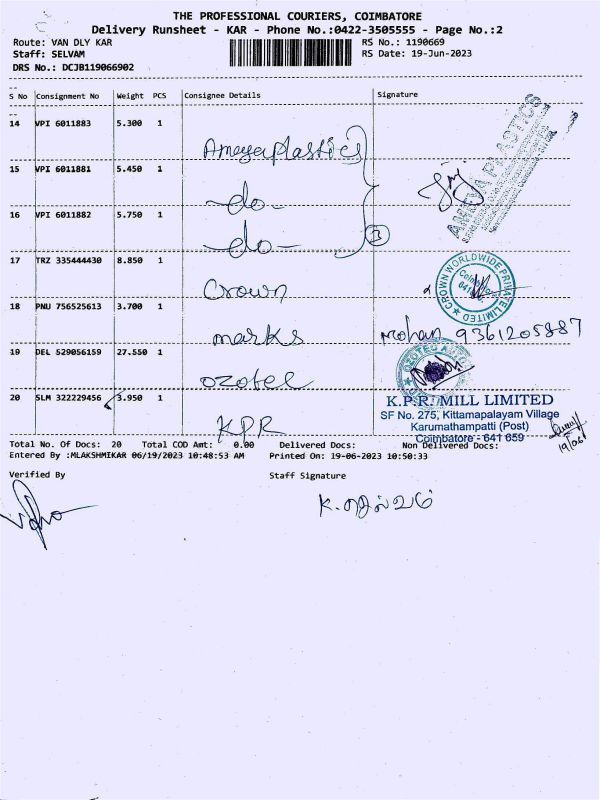 THE PROFESSIONAL COURIERS, COIMBATORE
Delivery Runsheet - KAR - Phone No.:0422-3505555 - Page No.:2
Route: VAN DLY KAR RS No.: 1190669
Staff: SELVAM RS Date: 19-Jun-2023
DRS No.: DCJB119066902
S No Consignment No Weight PCS Consignee Details Signature
14 VPI 6011883 5.300 1 Ameya plastics
15 VPI 6011881 5.450 1 -do-
16 VPI 6011882 5.750 1 -do- 3
AMEYA PLASTICS
17 TRZ 335444430 8.850 1 Crown
CROWN WORLDWIDE PRIVATE LIMITED
18 PNU 756525613 3.700 1 marks Mohan 9361205887
19 DEL 529056159 27.550 1 ozotel
20 SLM 322229456 3.950 1 KPR
K.P.R. MILL LIMITED
SF No. 275, Kittamapalayam Village
Karumathampatti (Post)
Coimbatore - 641 659
19/06
Total No. Of Docs: 20 Total COD Amt: 0.00 Delivered Docs: Non Delivered Docs:
Entered By :MLAKSHMIKAR 06/19/2023 10:48:53 AM Printed On: 19-06-2023 10:50:33
Verified By Staff Signature